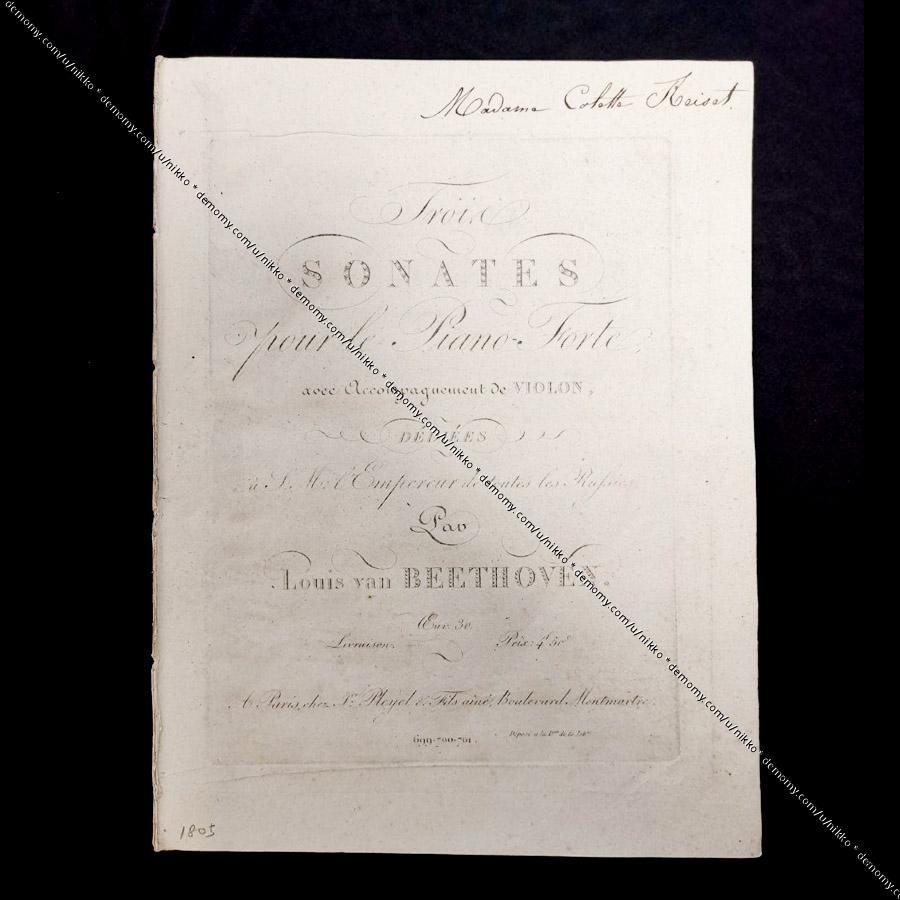 Madame Colette Reiset.
Trois
SONATES
pour le Piano-Forte,
avec Accompagnement de VIOLON,
DÉDIÉES
à S. M. l'Empereur de toutes les Russies
Par
Louis van BEETHOVEN.
Œuv. 30.
Livraison. Prix: 4f 50c
A Paris, chez Ic. Pleyel & Fils aîné, Boulevard Montmartre.
699-700-701. Déposé à la
1805
demomy.com/u/nikko * demomy.com/u/nikko * demomy.com/u/nikko * demomy.com/u/nikko * demomy.com/u/nikko * demomy.com/u/nikko * demomy.com/u/nikko * demomy.com/u/nikko * demomy.com/u/nikko * demomy.co